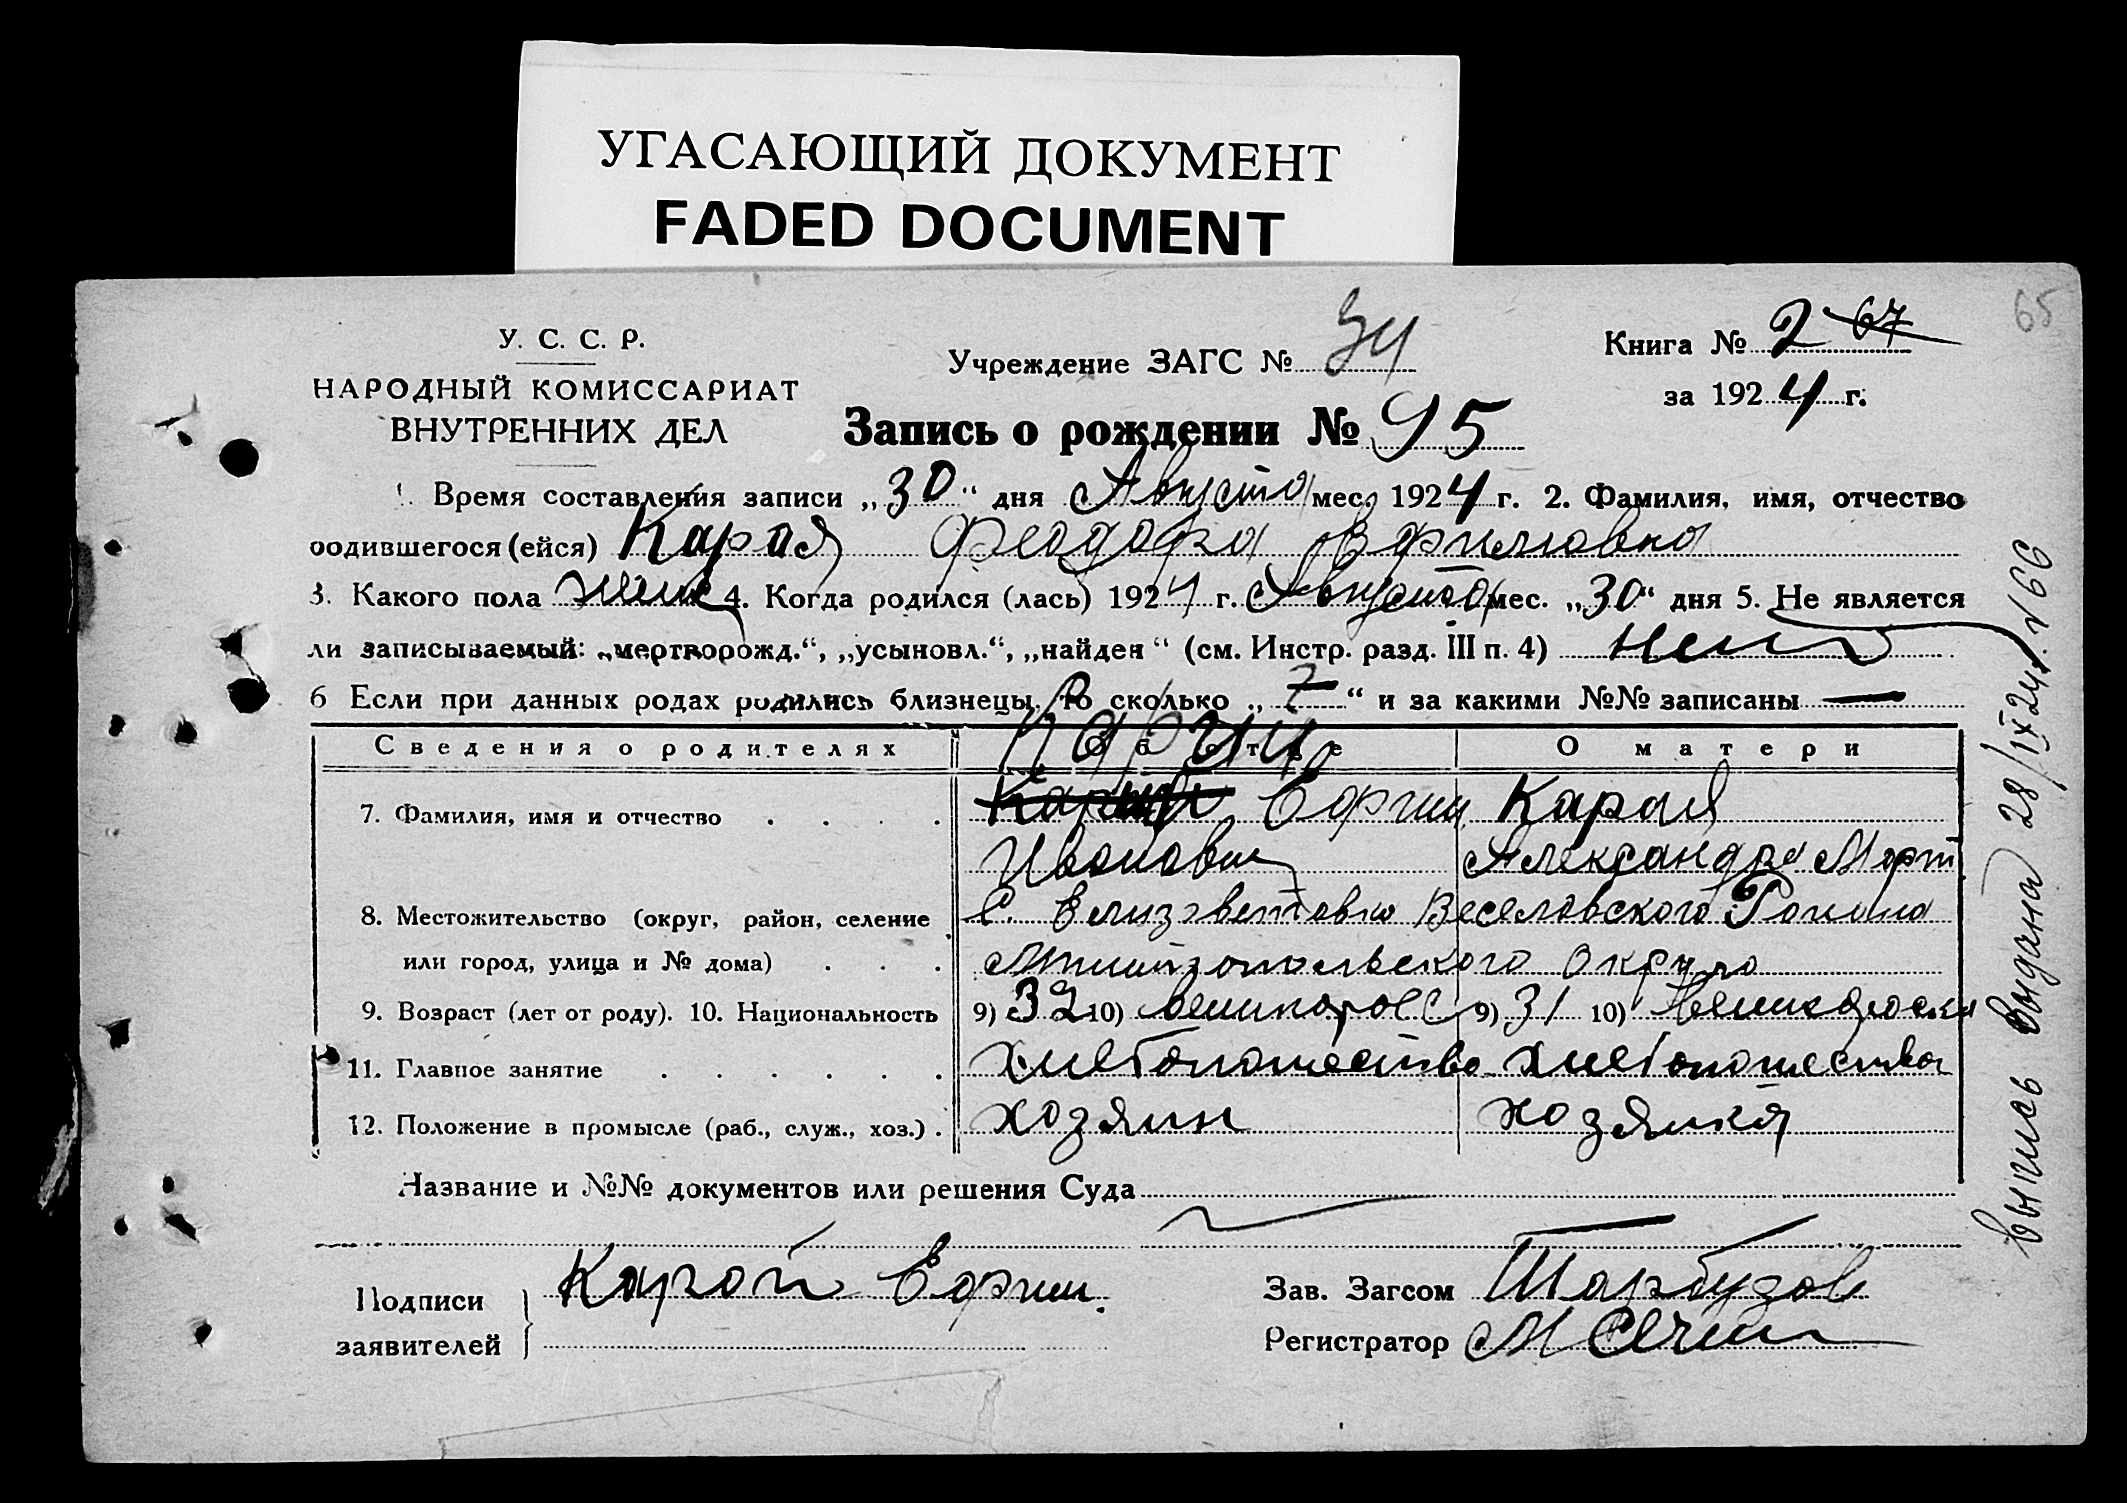 УГАСАЮЩИЙ ДОКУМЕНТ
FADED DOCUMENT
65
У. С. С. Р.
НАРОДНЫЙ КОМИССАРИАТ
ВНУТРЕННИХ ДЕЛ
Учреждение ЗАГС № 34
Книга № 2 67
за 1924 г.
Запись о рождении № 95
1. Время составления записи „30“ дня Августа мес. 1924 г. 2. Фамилия, имя, отчество
родившегося (ейся) Карая Феодора Ефимовна
3. Какого пола женс 4. Когда родился (лась) 1924 г. Августа мес. „30“ дня 5. Не является
ли записываемый: „мертворожд.“, „усыновл.“, „найден“ (см. Инстр. разд. III п. 4) нет
6 Если при данных родах родились близнецы, то сколько „ “ и за какими №№ записаны —
Сведения о родителях Об отце О матери
7. Фамилия, имя и отчество Ефим Карая
Иванович Александра Март
8. Местожительство (округ, район, селение С. Елизаветовка Веселовского Района
или город, улица и № дома) Мелитопольского округа
9. Возраст (лет от роду). 10. Национальность 9) 32 10) великоросс 9) 31 10) великоросска
11. Главное занятие хлебопашество хлебопашества
12. Положение в промысле (раб., служ., хоз.) хозяин хозяйка
Название и №№ документов или решения Суда
Подписи заявителей Карай Ефим.
Зав. Загсом
Регистратор
выпись выдана 28/IX 24 г. № 66